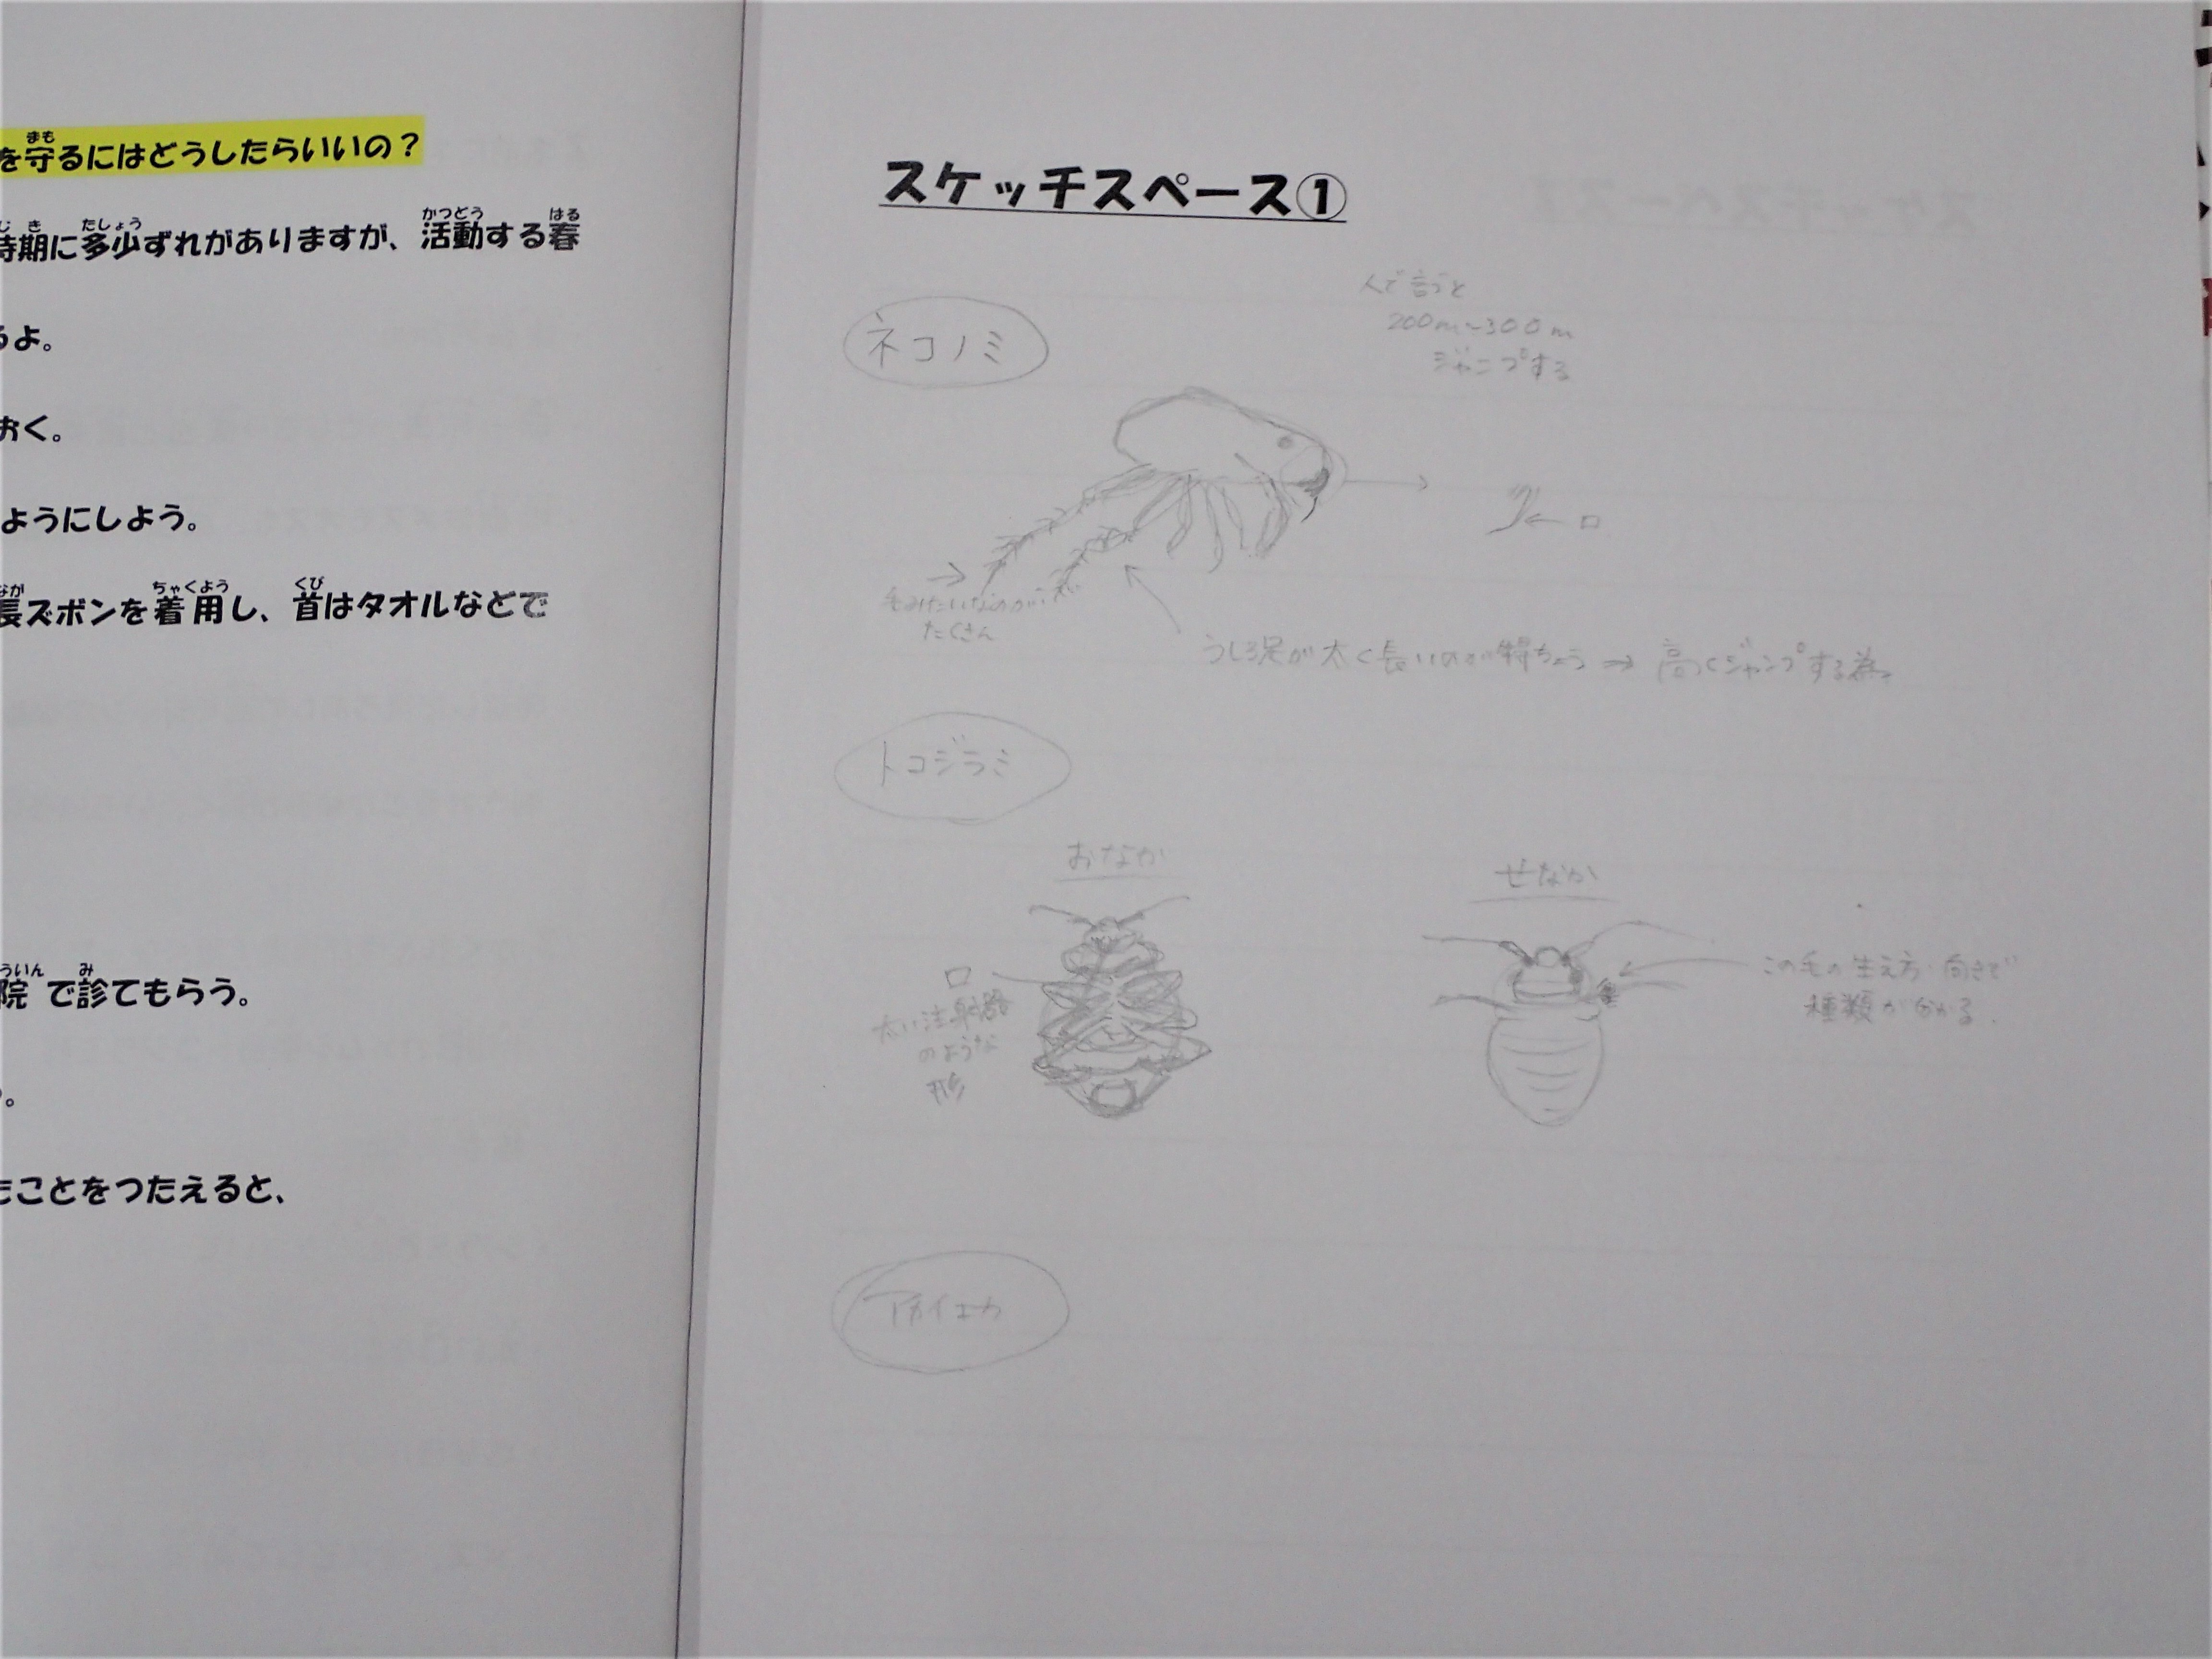 を守るにはどうしたらいいの？
まも
時期に多少ずれがありますが、活動する春
じき たしょう かつどう はる
るよ。
おく。
ようにしよう。
長ズボンを着用し、首はタオルなどで
なが ちゃくよう くび
院で診てもらう。
ういん み
。
たことをつたえると、
スケッチスペース①
ネコノミ
人で言うと
200m～300m
ジャンプする
口
毛みたいなのが
たくさん
うしろ足が太く長いのが特ちょう⇒高くジャンプする為。
トコジラミ
おなか
せなか
口
太い注射器
のような
形
この毛の生え方・向きで
種類が分かる.
アカイエカ